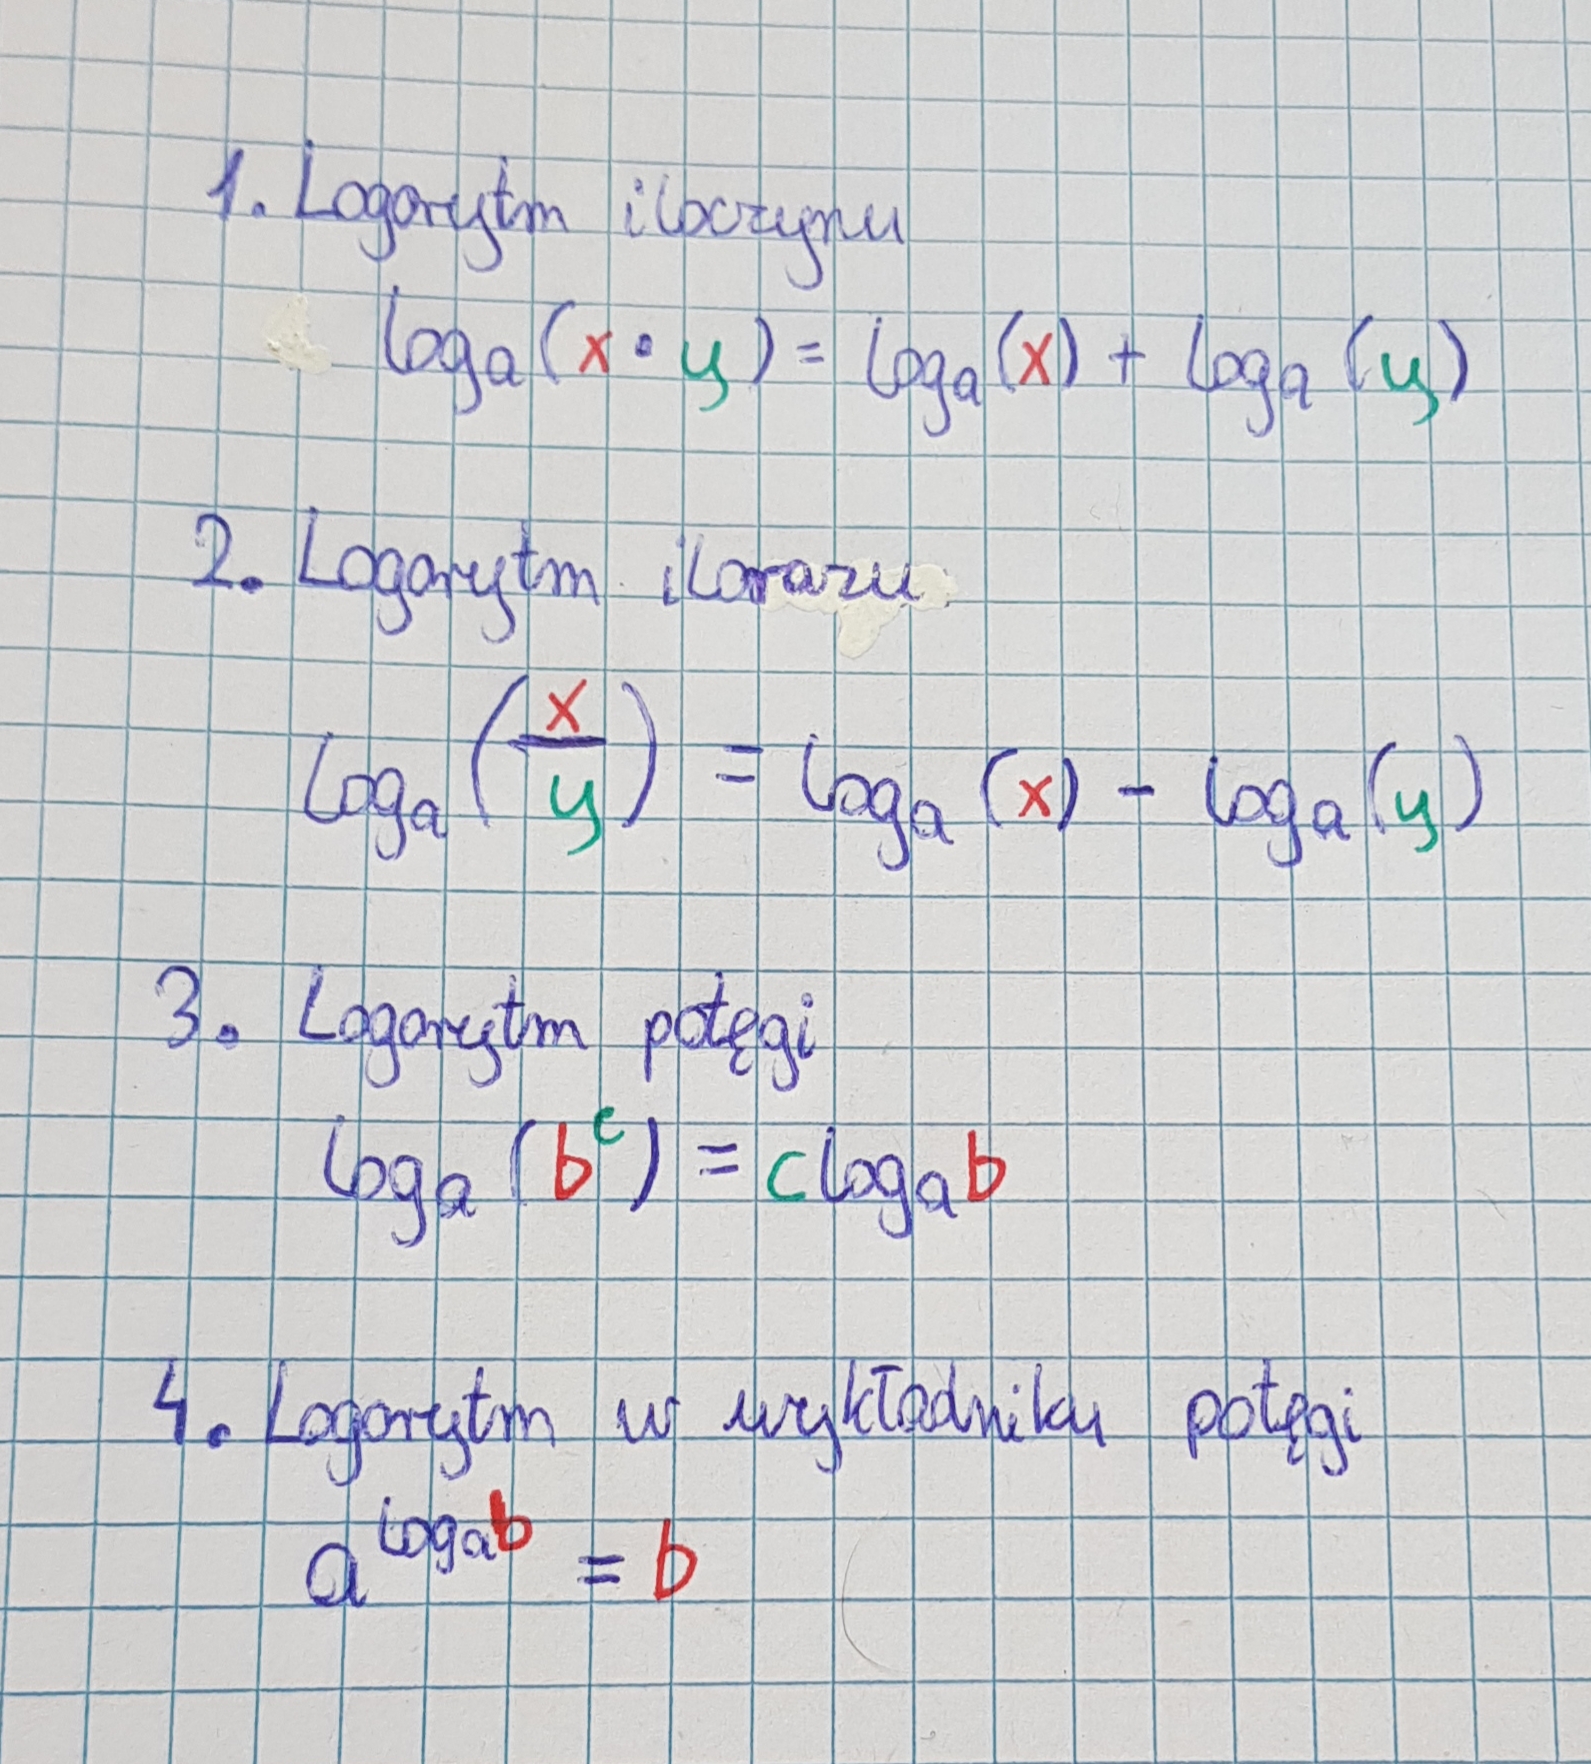 1. Logarytm iloczynu
logₐ(x • y) = logₐ(x) + logₐ(y)
2. Logarytm ilorazu
logₐ(x/y) = logₐ(x) - logₐ(y)
3. Logarytm potęgi
logₐ(bᶜ) = c logₐb
4. Logarytm w wykładniku potęgi
a^(logₐb) = b